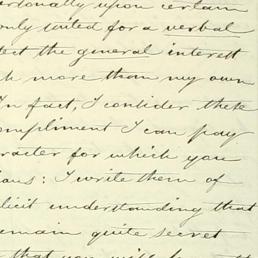 ersonally upon certain
only suited for a verbal
tect the general interest
h more than my own
In fact, I consider these
ompliment I can pay
aracter for which you
ious: I write them of
licit understanding that
emain quite secret
that you will